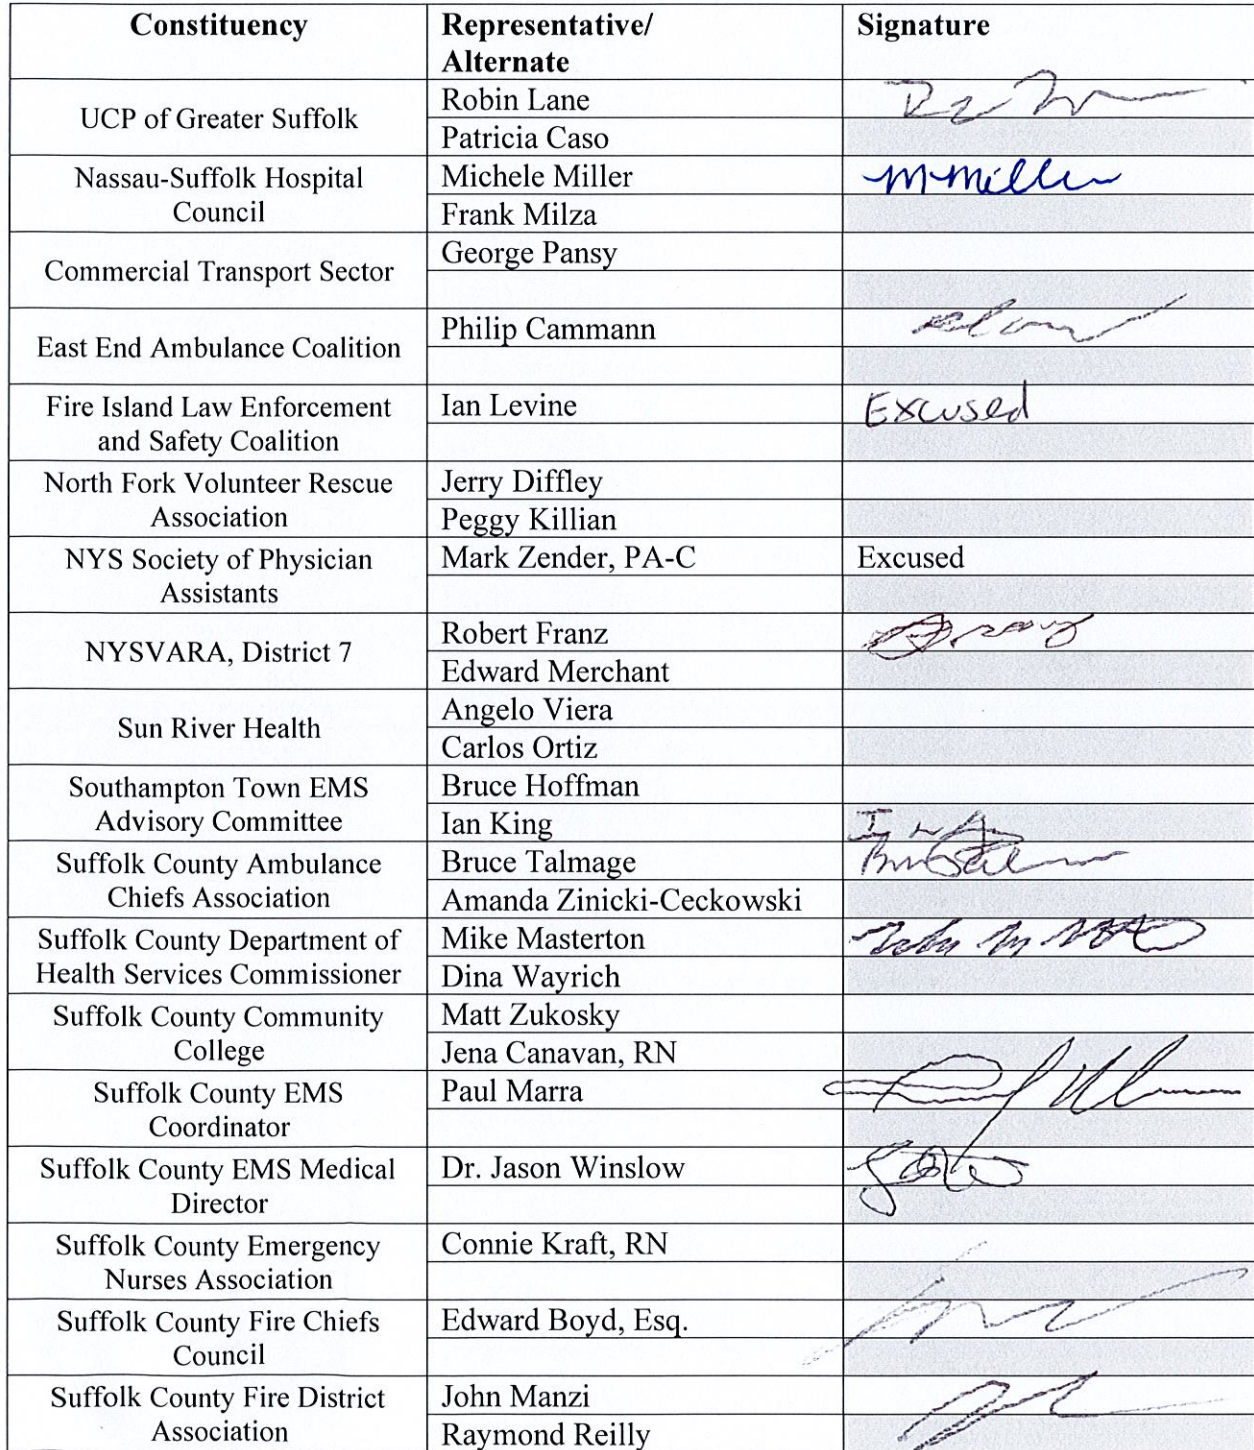 Constituency Representative/ Signature
Alternate
UCP of Greater Suffolk
Robin Lane
Patricia Caso
Nassau-Suffolk Hospital
Council
Michele Miller M Miller
Frank Milza
Commercial Transport Sector
George Pansy
East End Ambulance Coalition
Philip Cammann
Fire Island Law Enforcement
and Safety Coalition
Ian Levine Excused
North Fork Volunteer Rescue
Association
Jerry Diffley
Peggy Killian
NYS Society of Physician
Assistants
Mark Zender, PA-C Excused
NYSVARA, District 7
Robert Franz
Edward Merchant
Sun River Health
Angelo Viera
Carlos Ortiz
Southampton Town EMS
Advisory Committee
Bruce Hoffman
Ian King
Suffolk County Ambulance
Chiefs Association
Bruce Talmage
Amanda Zinicki-Ceckowski
Suffolk County Department of
Health Services Commissioner
Mike Masterton
Dina Wayrich
Suffolk County Community
College
Matt Zukosky
Jena Canavan, RN
Suffolk County EMS
Coordinator
Paul Marra
Suffolk County EMS Medical
Director
Dr. Jason Winslow
Suffolk County Emergency
Nurses Association
Connie Kraft, RN
Suffolk County Fire Chiefs
Council
Edward Boyd, Esq.
Suffolk County Fire District
Association
John Manzi
Raymond Reilly